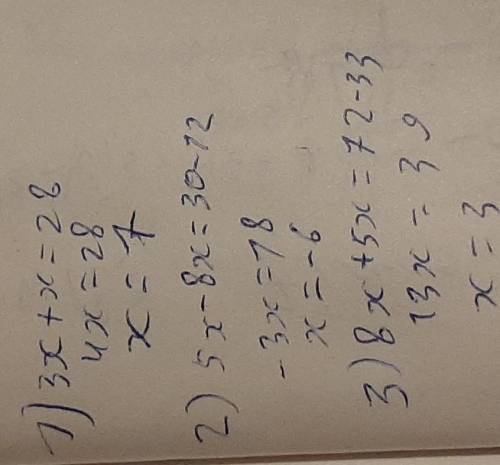 1) 3x+x=28
4x=28
x=7
2) 5x-8x=30-12
-3x=18
x=-6
3) 8x+5x=72-33
13x=39
x=3